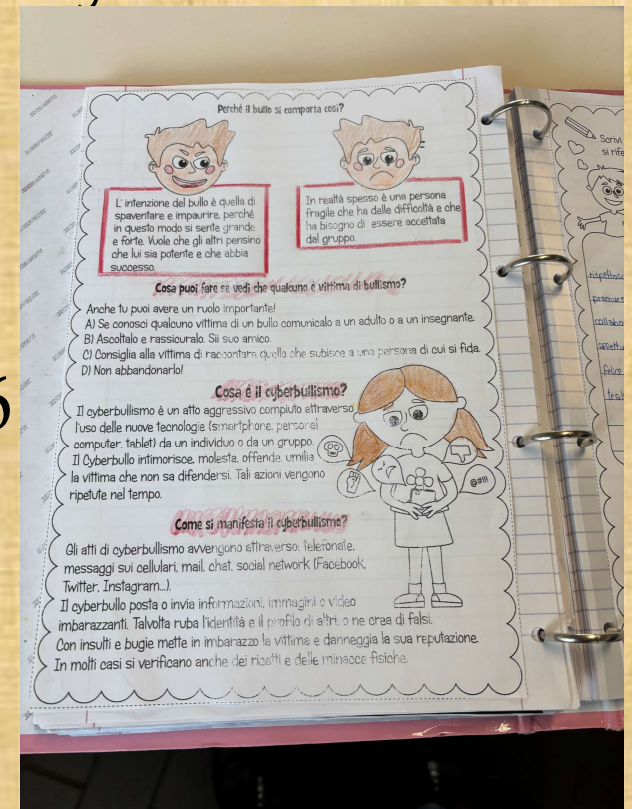 Perché il bullo si comporta così?
L' intenzione del bullo è quella di
spaventare e impaurire, perché
in questo modo si sente grande
e forte. Vuole che gli altri pensino
che lui sia potente e che abbia
successo.
In realtà spesso è una persona
fragile che ha delle difficoltà e che
ha bisogno di essere accettata
dal gruppo.
Cosa puoi fare se vedi che qualcuno è vittima di bullismo?
Anche tu puoi avere un ruolo importante!
A) Se conosci qualcuno vittima di un bullo comunicalo a un adulto o a un insegnante.
B) Ascoltalo e rassicuralo. Sii suo amico.
C) Consiglia alla vittima di raccontare quello che subisce a una persona di cui si fida.
D) Non abbandonarlo!
Cosa è il cyberbullismo?
Il cyberbullismo è un atto aggressivo compiuto attraverso
l'uso delle nuove tecnologie (smartphone, personal
computer, tablet) da un individuo o da un gruppo.
Il Cyberbullo intimorisce, molesta, offende, umilia
la vittima che non sa difendersi. Tali azioni vengono
ripetute nel tempo.
@#!!!
Come si manifesta il cyberbullismo?
Gli atti di cyberbullismo avvengono attraverso: telefonate,
messaggi sui cellulari, mail, chat, social network (Facebook,
Twitter, Instagram...).
Il cyberbullo posta o invia informazioni, immagini o video
imbarazzanti. Talvolta ruba l'identità e il profilo di altri, o ne crea di falsi.
Con insulti e bugie mette in imbarazzo la vittima e danneggia la sua reputazione.
In molti casi si verificano anche dei ricatti e delle minacce fisiche.
Scrivi
si rife
felice
6